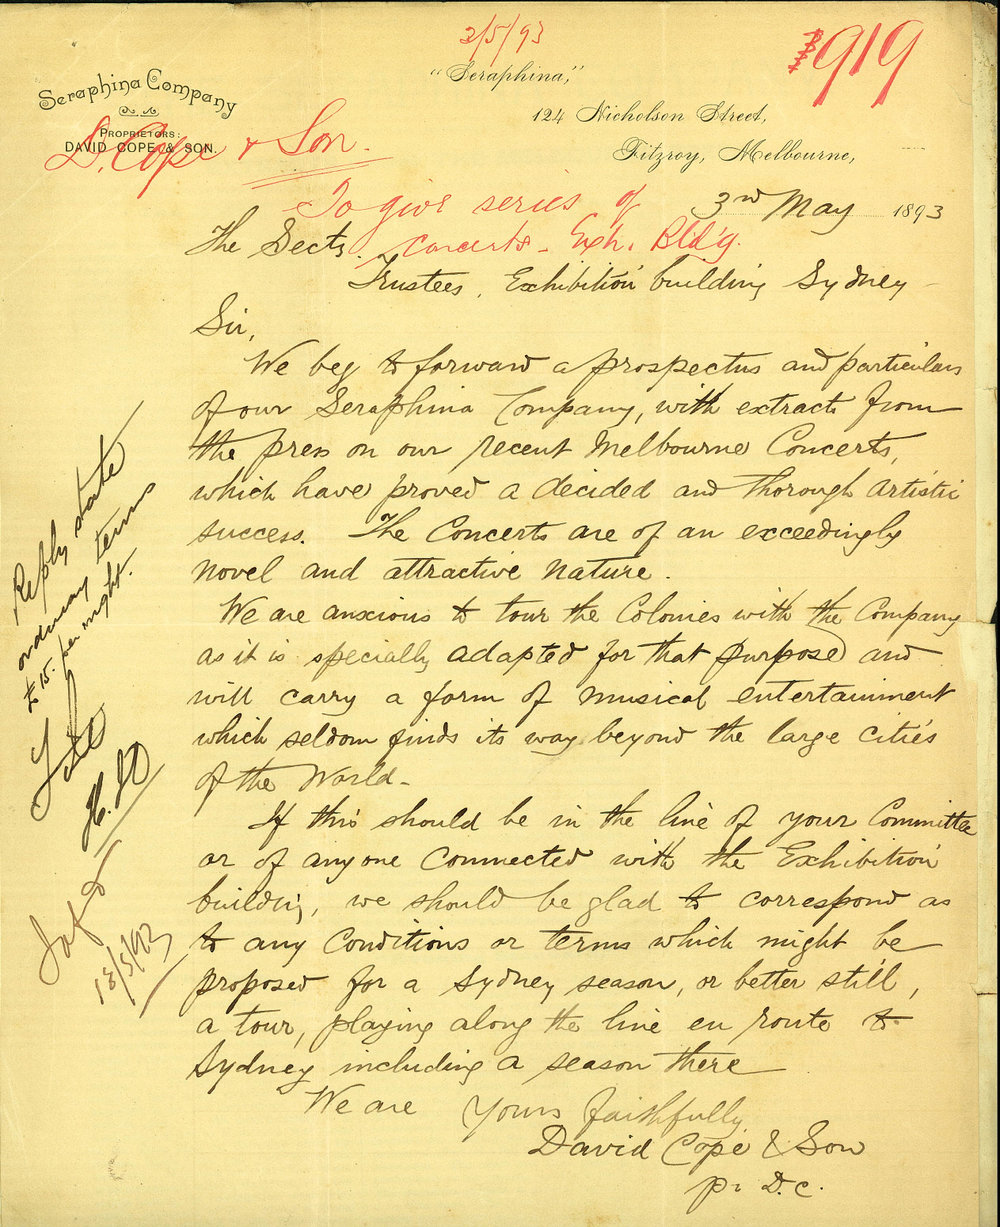 2/5/93
919
Seraphina Company
Proprietors:
David Cope & Son.
"Seraphina,"
124 Nicholson Street,
Fitzroy, Melbourne,
D. Cope & Son.
To give series of
concerts - Exh. Bld'g.
3rd May 1893
The Secty.
Trustees, Exhibition building Sydney
Sir,
We beg to forward a prospectus and particulars
of our Seraphina Company, with extracts from
the press on our recent Melbourne Concerts,
which have proved a decided and thorough artistic
success. The Concerts are of an exceedingly
novel and attractive nature.
We are anxious to tour the Colonies with the Company
as it is specially adapted for that purpose and
will carry a form of musical entertainment
which seldom finds its way beyond the large cities
of the World-
If this should be in the line of your Committee
or of anyone connected with the Exhibition
building, we should be glad to correspond as
to any conditions or terms which might be
proposed for a Sydney season, or better still,
a tour, playing along the line en route to
Sydney including a season there
We are Yours faithfully
David Cope & Son
pr D.C.
Reply state
ordinary terms
£15. per night.
18/5/93